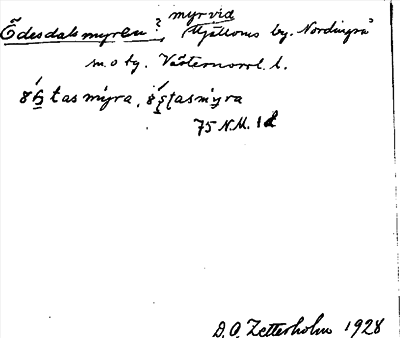 Ödesdalsmyren? myr vid Mjälloms by. Nordingrå
m. o ty. Västernorrl. l.
tasmyra, stasmyra
75 N.M. 1d
D. O. Zetterholm 1928